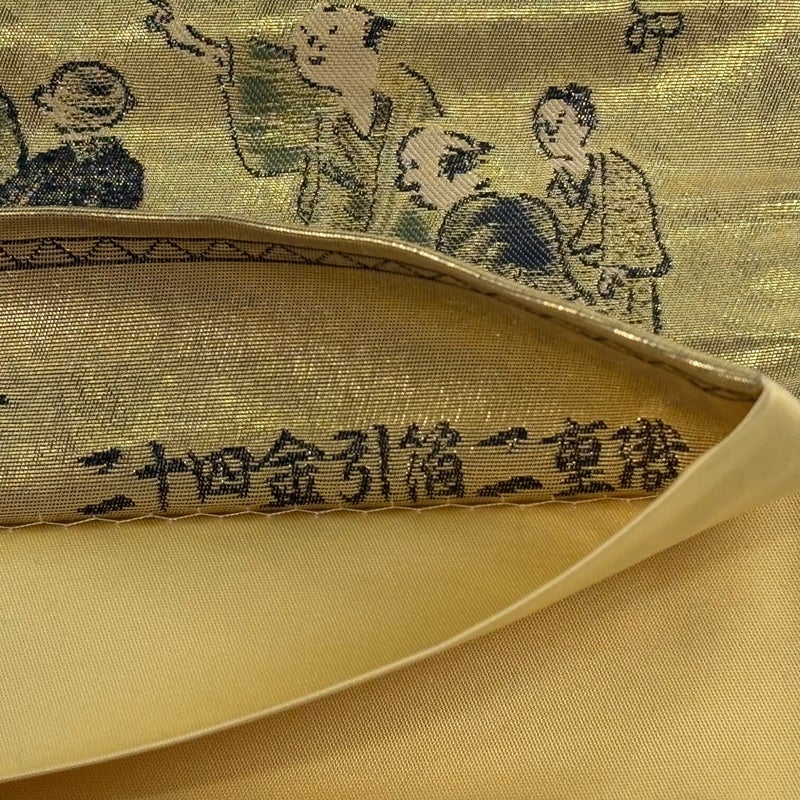 二十四金引箔二重